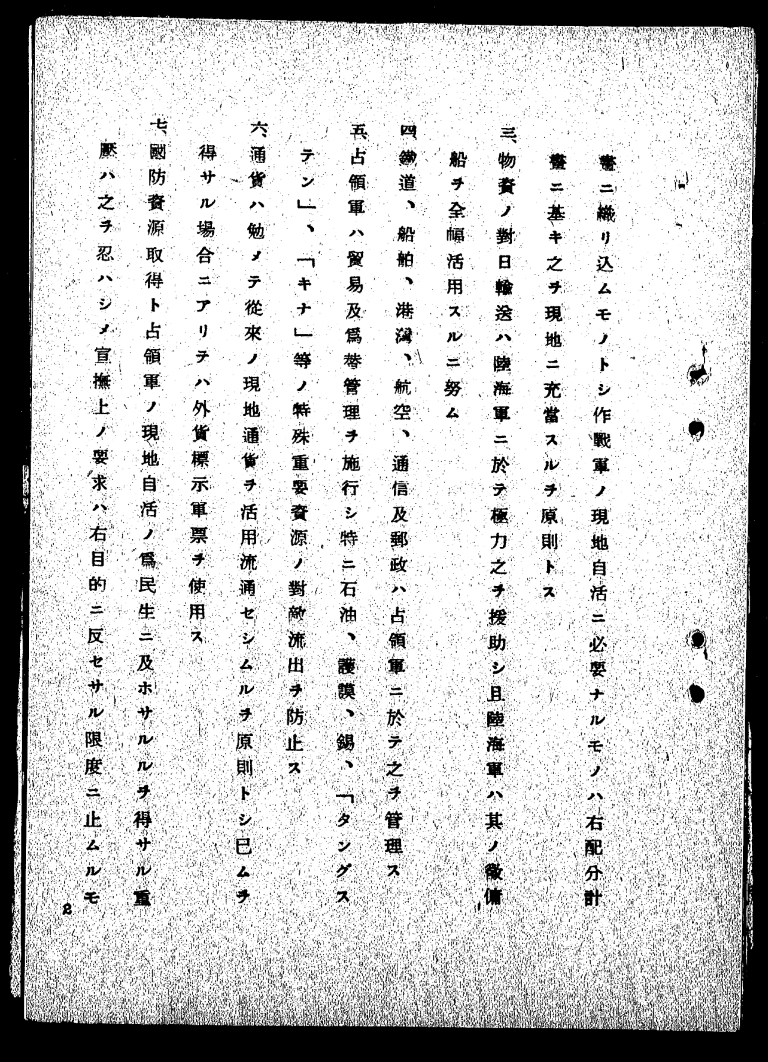 畫ニ織リ込ムモノトシ作戰軍ノ現地自活ニ必要ナルモノハ右配分計
畫ニ基キ之ヲ現地ニ充當スルヲ原則トス
三、物資ノ對日輸送ハ陸海軍ニ於テ極力之ヲ援助シ且陸海軍ハ其ノ徵傭
船ヲ全幅活用スルニ努ム
四、鐵道、船舶、港灣、航空、通信及郵政ハ占領軍ニ於テ之ヲ管理ス
五、占領軍ハ貿易及爲替管理ヲ施行シ特ニ石油、護謨、錫、「タングス
テン」、「キナ」等ノ特殊重要資源ノ對敵流出ヲ防止ス
六、通貨ハ勉メテ從來ノ現地通貨ヲ活用流通セシムルヲ原則トシ已ムヲ
得サル場合ニアリテハ外貨標示軍票ヲ使用ス
七、國防資源取得ト占領軍ノ現地自活ノ爲民生ニ及ホサルルヲ得サル重
壓ハ之ヲ忍ハシメ宣撫上ノ要求ハ右目的ニ反セサル限度ニ止ムルモ
2